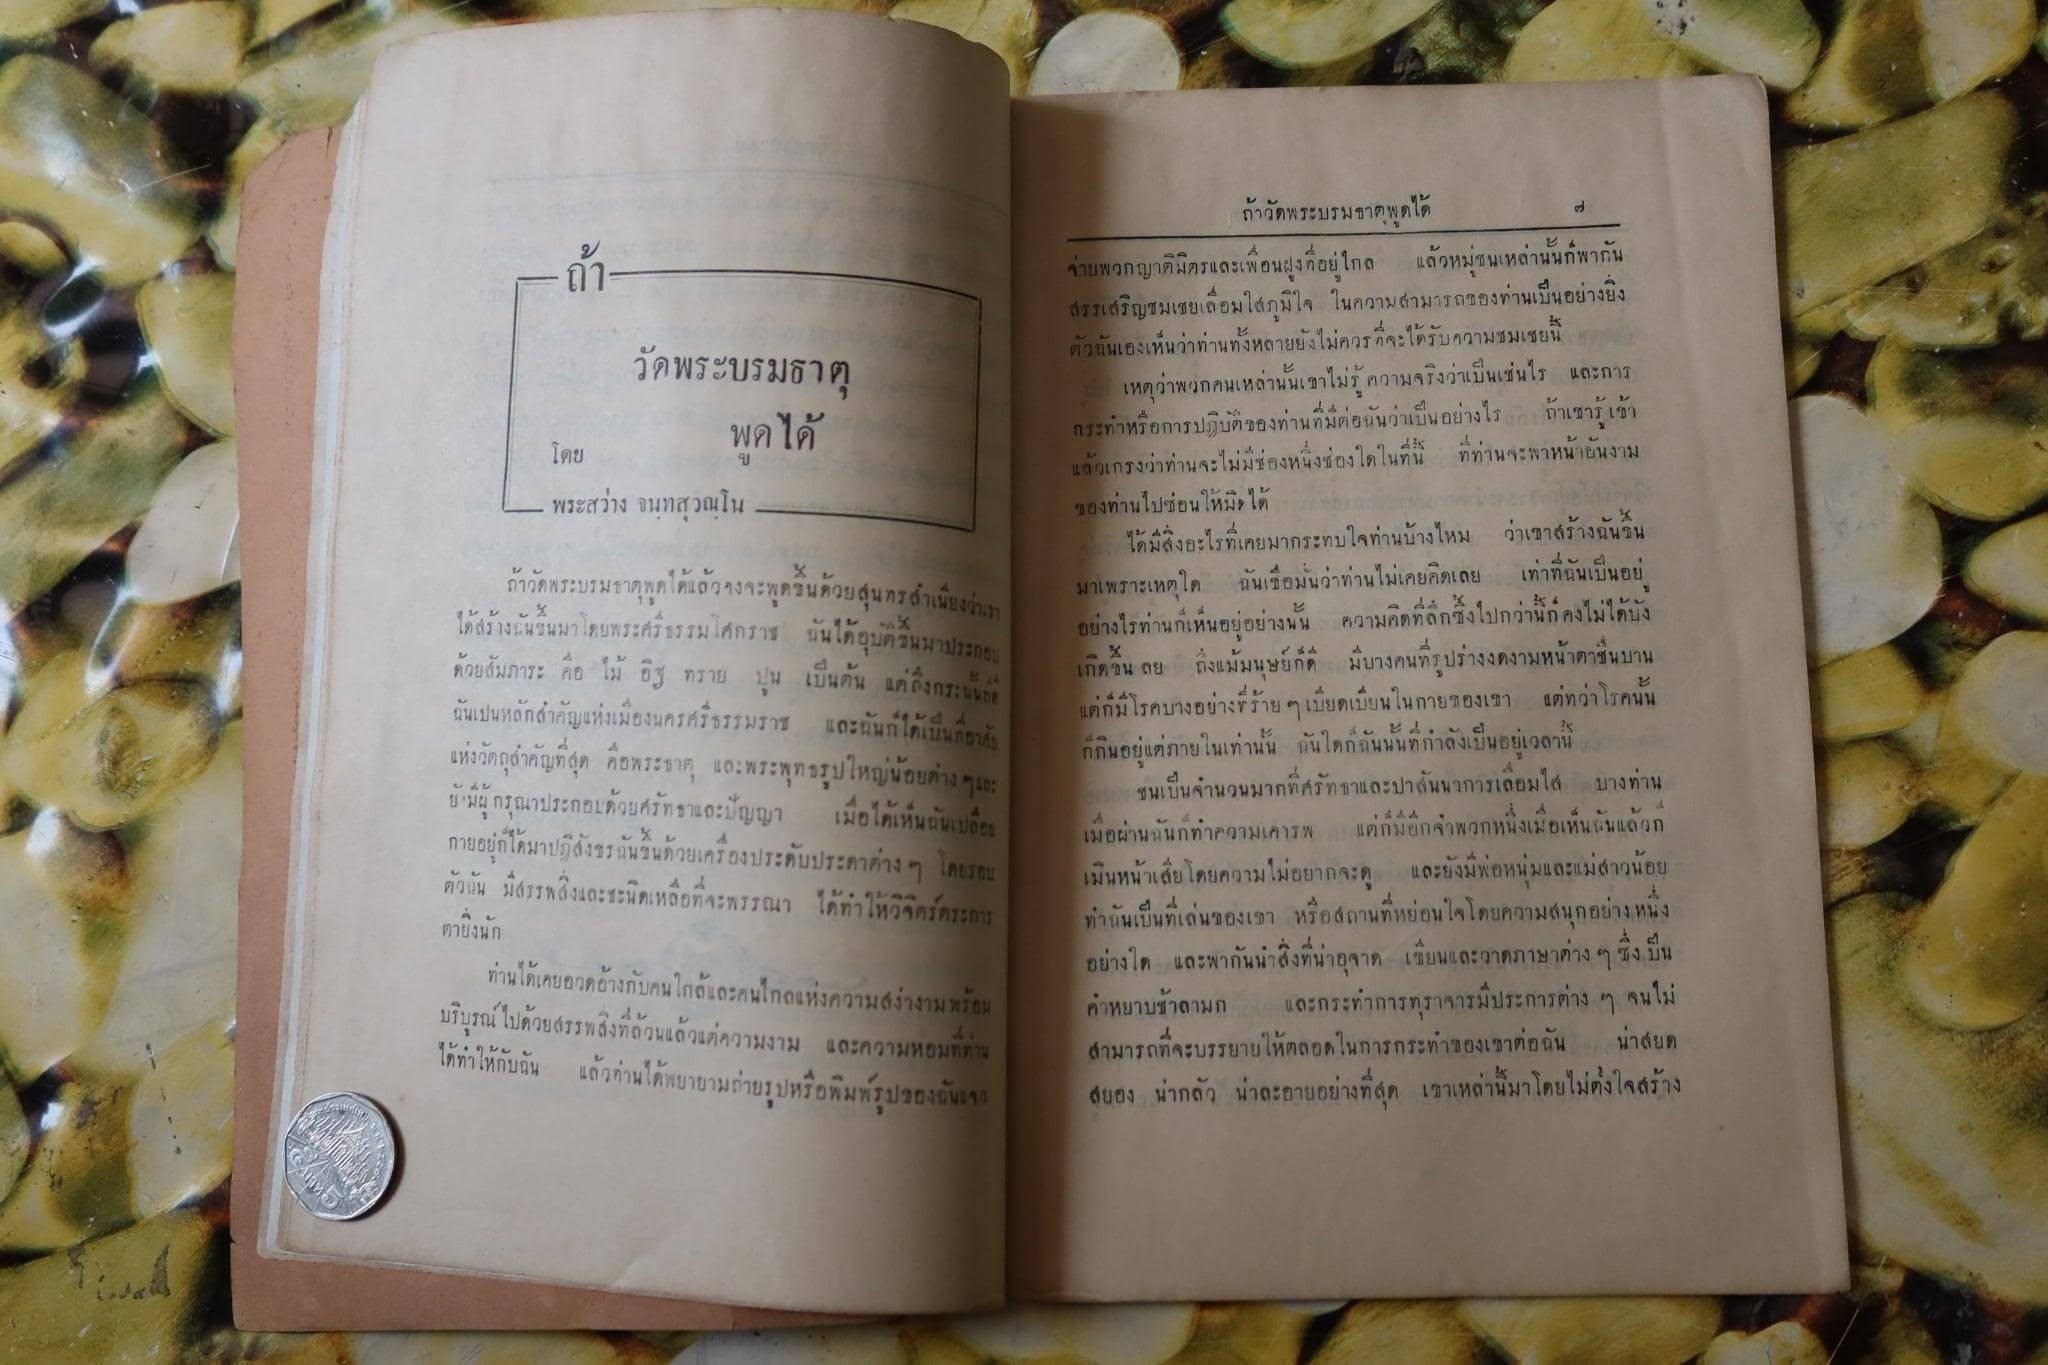 ถ้า
วัดพระบรมธาตุ
พูดได้
โดย
พระสว่าง จนฺทสุวณฺโน
ถ้าวัดพระบรมธาตุพูดได้แล้วจงจะพูดขึ้นด้วยสุนทรสำเนียงว่าเขา
ได้สร้างฉันขึ้นมาโดยพระศรีธรรมโศกราช ฉันได้อุบัติขึ้นมาประกอบ
ด้วยสัมภาระ คือ ไม้ อิฐ ทราย ปูน เป็นต้น แต่ถึงกระนั้นก็ดี
ฉันเปนหลักสำคัญแห่งเมืองนครศรีธรรมราช และฉันก็ได้เป็นที่อาศัย
แห่งวัตถุสำคัญที่สุด คือพระธาตุ และพระพุทธรูปใหญ่น้อยต่าง ๆ และ
มีผู้กรุณาประกอบด้วยศรัทธาและปัญญา เมื่อได้เห็นฉันเปลือย
กายอยู่ก็ได้มาปฏิสังขรฉันขึ้นด้วยเครื่องประดับประดาต่าง ๆ โดยรอบ
ตัวฉัน มีสรรพสิ่งและชะนิดเหลือที่จะพรรณา ได้ทำให้วิจิตร์ตระการ
ตายิ่งนัก
ท่านได้เคยอวดอ้างกับคนใกล้และคนไกลแห่งความสง่างามพร้อม
บริบูรณ์ไปด้วยสรรพสิ่งที่ล้วนแล้วแต่ความงาม และความหอมที่ท่าน
ได้ทำให้กับฉัน แล้วท่านได้พยายามถ่ายรูปหรือพิมพ์รูปของฉันแจก
ถ้าวัดพระบรมธาตุพูดได้ ๗
จ่ายพวกญาติมิตรและเพื่อนฝูงที่อยู่ไกล แล้วหมู่ชนเหล่านั้นก็พากัน
สรรเสริญชมเชยเลื่อมใสภูมิใจ ในความสามารถของท่านเป็นอย่างยิ่ง
ตัวฉันเองเห็นว่าท่านทั้งหลายยังไม่ควรที่จะได้รับความชมเชยนี้
เหตุว่าพวกคนเหล่านั้นเขาไม่รู้ความจริงว่าเป็นเช่นไร และการ
กระทำหรือการปฏิบัติของท่านที่มีต่อฉันว่าเป็นอย่างไร ถ้าเขารู้เข้า
แล้วเกรงว่าท่านจะไม่มีช่องหนึ่งช่องใดในที่นี้ ที่ท่านจะพาหน้าอันงาม
ของท่านไปซ่อนให้มิดได้
ได้มีสิ่งอะไรที่เคยมากระทบใจท่านบ้างไหม ว่าเขาสร้างฉันขึ้น
มาเพราะเหตุใด ฉันเชื่อมั่นว่าท่านไม่เคยคิดเลย เท่าที่ฉันเป็นอยู่
อย่างไรท่านก็เห็นอยู่อย่างนั้น ความคิดที่ลึกซึ้งไปกว่านี้ก็คงไม่ได้บัง
เกิดขึ้นเลย ถึงแม้มนุษย์ก็ดี มีบางคนที่รูปร่างงดงามหน้าตาชื่นบาน
แต่ก็มีโรคบางอย่างที่ร้าย ๆ เบียดเบียนในกายของเขา แต่ทว่าโรคนั้น
ก็กินอยู่แต่ภายในเท่านั้น ฉันใดก็ฉันนั้นที่กำลังเป็นอยู่เวลานี้
ชนเป็นจำนวนมากที่ศรัทธาและปาสันนาการเลื่อมใส บางท่าน
เมื่อผ่านฉันก็ทำความเคารพ แต่ก็มีอีกจำพวกหนึ่งเมื่อเห็นฉันแล้วก็
เมินหน้าเสียโดยความไม่อยากจะดู และยังมีพ่อหนุ่มและแม่สาวน้อย
ทำฉันเป็นที่เล่นของเขา หรือสถานที่หย่อนใจโดยความสนุกอย่างหนึ่ง
อย่างใด และพากันนำสิ่งที่น่าอุจาด เขียนและวาดภาษาต่าง ๆ ซึ่งเป็น
คำหยาบช้าลามก และกระทำการทุราจารมีประการต่าง ๆ จนไม่
สามารถที่จะบรรยายให้ตลอดในการกระทำของเขาต่อฉัน น่าสยด
สยอง น่ากลัว น่าละอายอย่างที่สุด เขาเหล่านี้มาโดยไม่ตั้งใจสร้าง